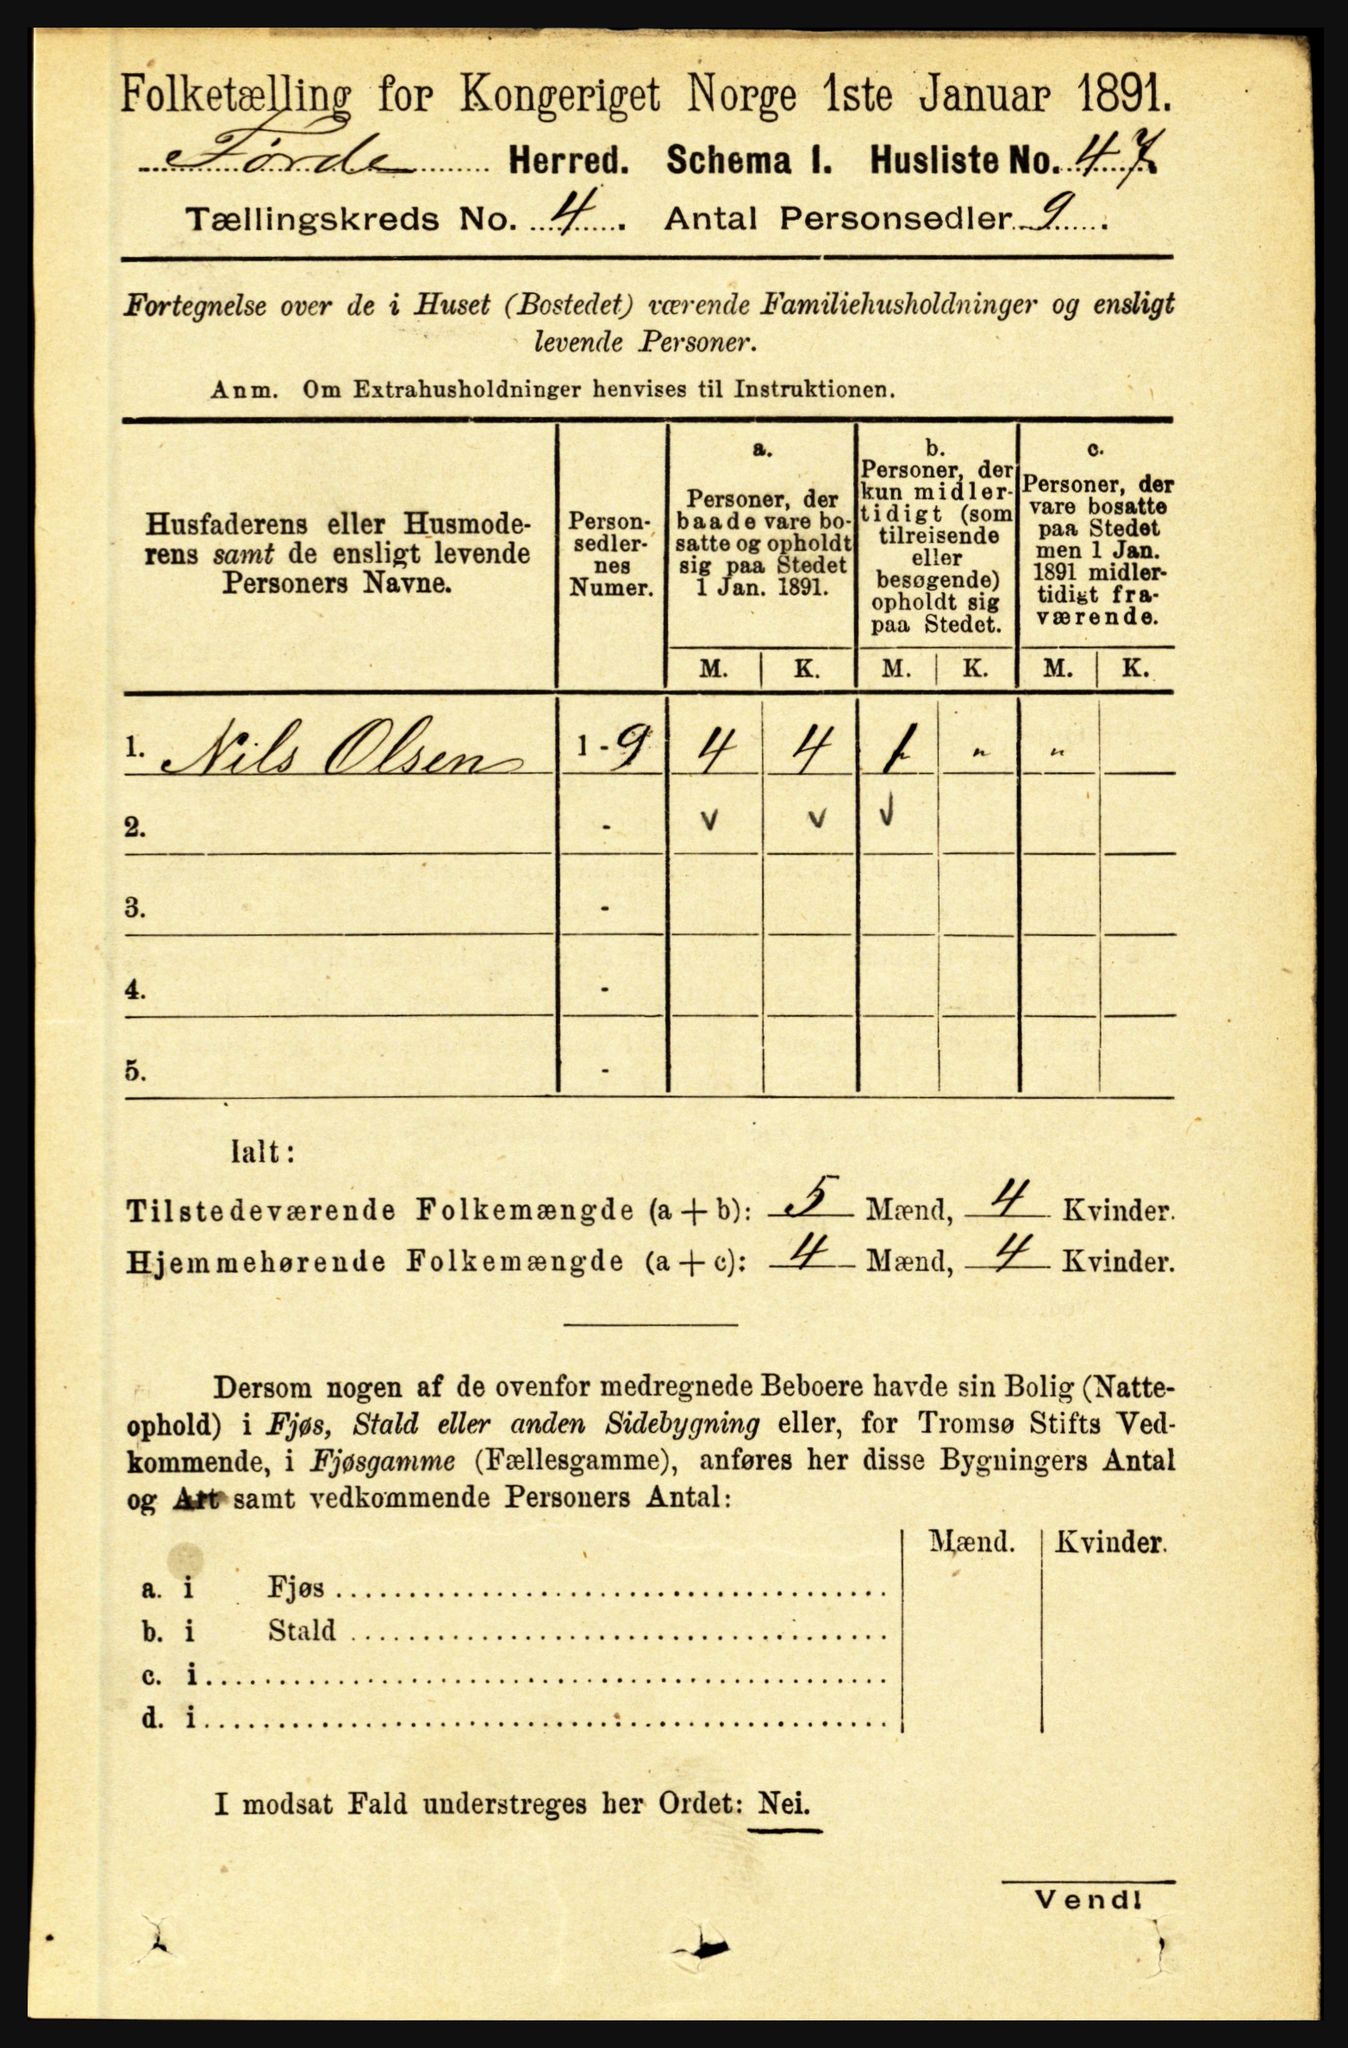 Folketælling for Kongeriget Norge 1ste Januar 1891.
Førde Herred. Schema I. Husliste No. 47
Tællingskreds No. 4. Antal Personsedler 9.
Fortegnelse over de i Huset (Bostedet) værende Familiehusholdninger og ensligt
levende Personer.
Anm. Om Extrahusholdninger henvises til Instruktionen.
Husfaderens eller Husmode-
rens samt de ensligt levende
Personers Navne.
Person-
sedler-
nes
Numer.
a.
Personer, der
baade vare bo-
satte og opholdt
sig paa Stedet
1 Jan. 1891.
b.
Personer, der
kun midler-
tidigt (som
tilreisende
eller
besøgende)
opholdt sig
paa Stedet.
c.
Personer, der
vare bosatte
paa Stedet
men 1 Jan.
1891 midler-
tidigt fra-
værende.
M. K. M. K. M. K.
1. Nils Olsen 1-9 4 4 1 " "
2. - v v v
3. -
4. -
5. -
Ialt:
Tilstedeværende Folkemængde (a+b): 5 Mænd, 4 Kvinder.
Hjemmehørende Folkemængde (a+c): 4 Mænd, 4 Kvinder.
Dersom nogen af de ovenfor medregnede Beboere havde sin Bolig (Natte-
ophold) i Fjøs, Stald eller anden Sidebygning eller, for Tromsø Stifts Ved-
kommende, i Fjøsgamme (Fællesgamme), anføres her disse Bygningers Antal
og Art samt vedkommende Personers Antal:
Mænd. Kvinder.
a. i Fjøs
b. i Stald
c. i
d. i
I modsat Fald understreges her Ordet: Nei.
Vend!